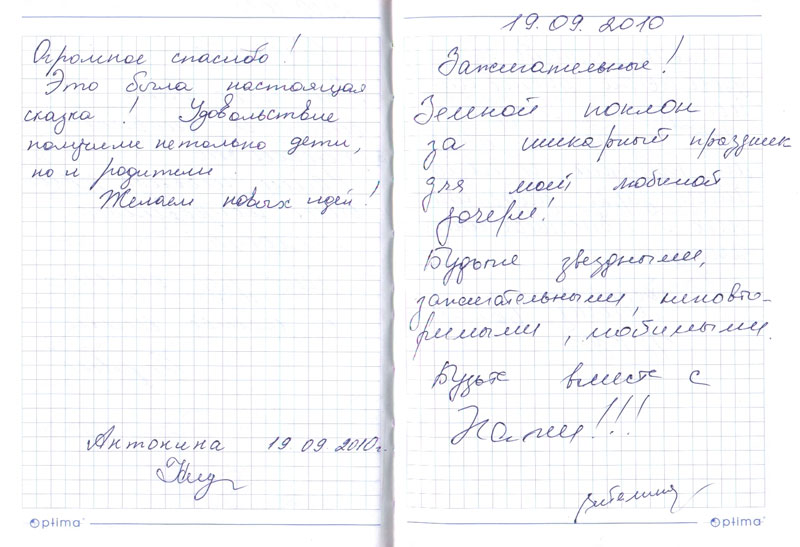 Огромное спасибо!
Это была настоящая
сказка! Удовольствие
получили не только дети,
но и родители.
Желаем новых идей!
Антонина 19.09.2010г.
Optima
19.09.2010
Зажигательные!
Земной поклон
за шикарный праздник
для моей любимой
дочери!
Будьте звездными,
зажигательными, неповто-
римыми, любимыми.
Будьте вместе с
Нами!!!
Optima